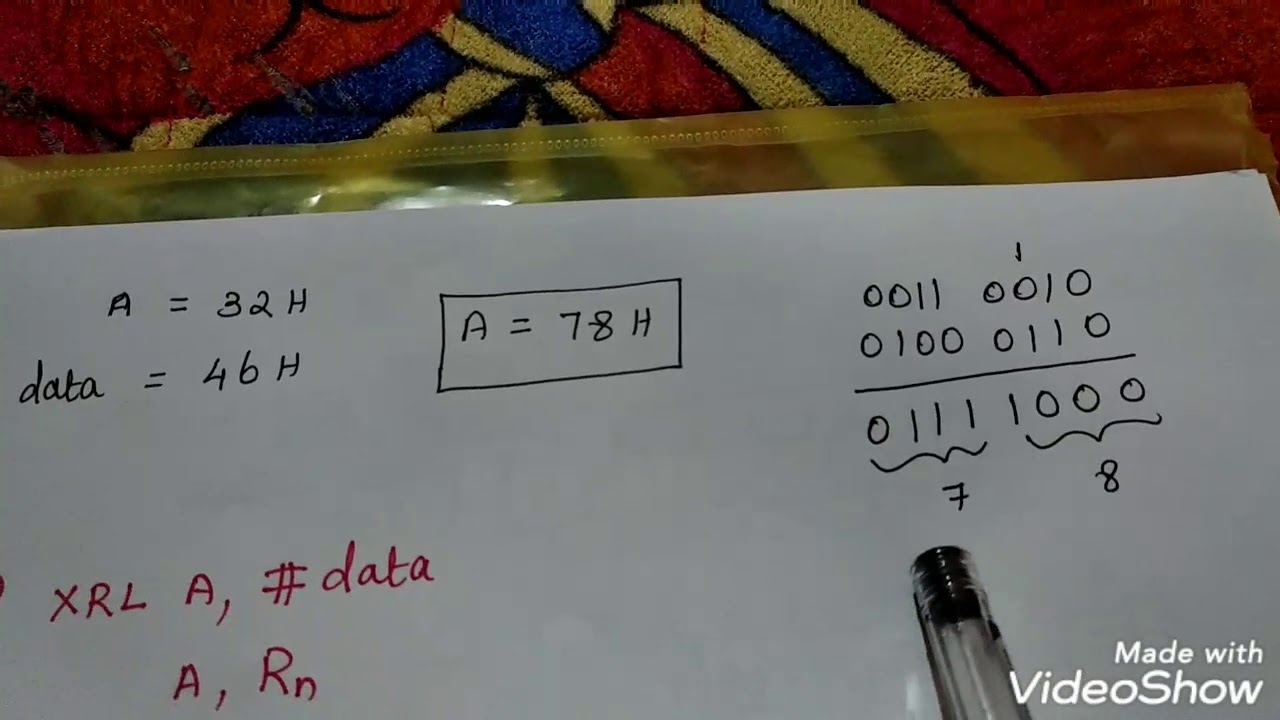 A = 32 H
data = 46 H
A = 78 H
1
0011 0010
0100 0110
0111 1000
7 8
XRL A, # data
A, Rn
Made with
VideoShow